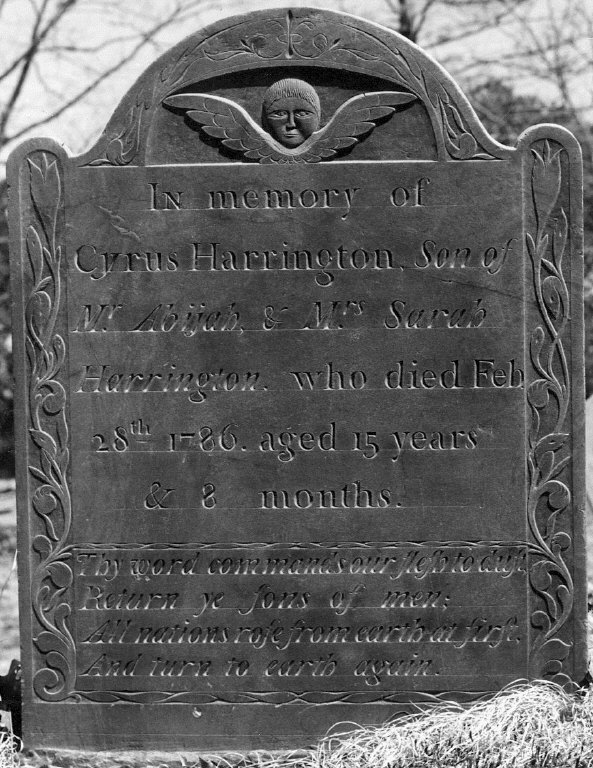 In memory of
Cyrus Harrington, Son of
Mr Abijah, & Mrs Sarah
Harrington. who died Feb
28th 1786. aged 15 years
& 8 months.
Thy word commands our fleſh to duſt
Return ye ſons of men;
All nations roſe from earth at firſt,
And turn to earth again.